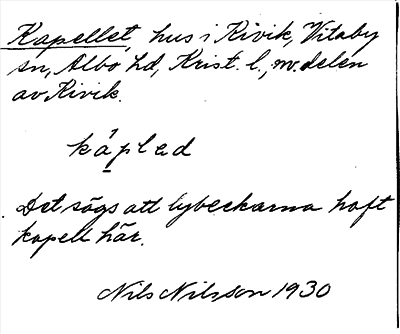 Kapellet, hus i Kivik, Vitaby
sn, Albo hd, Krist. l., nv. delen
av Kivik.
kápled
Det sägs att lybeckarna haft
kapell här.
Nils Nilsson 1930